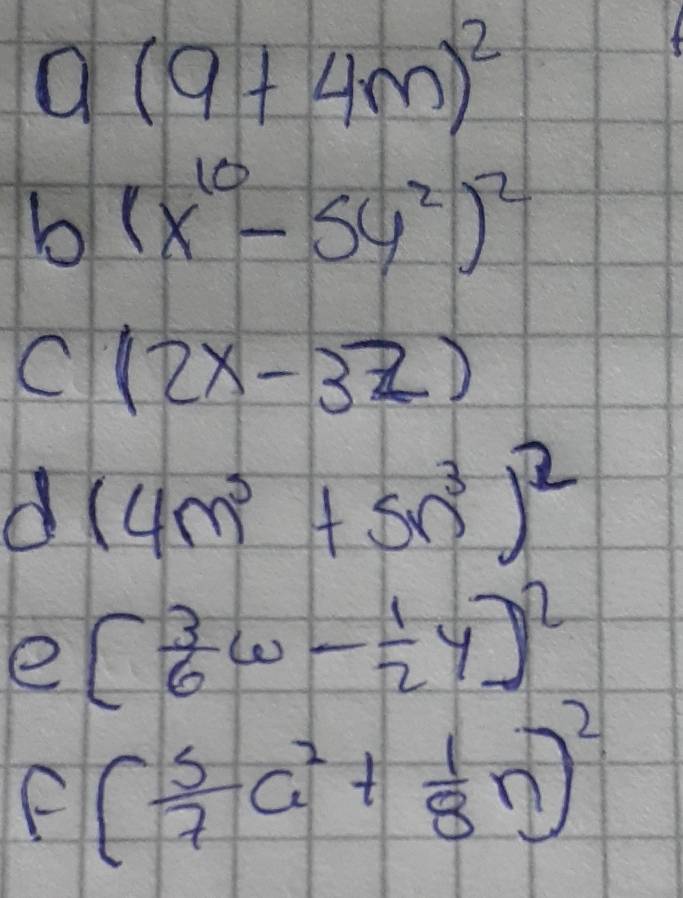 a (9 + 4m)²
b (x¹⁰ - 5y²)²
c (2x - 3z)
d (4m³ + 5n³)²
e [3/6 w - 1/2 y]²
f [5/7 a² + 1/8 n]²